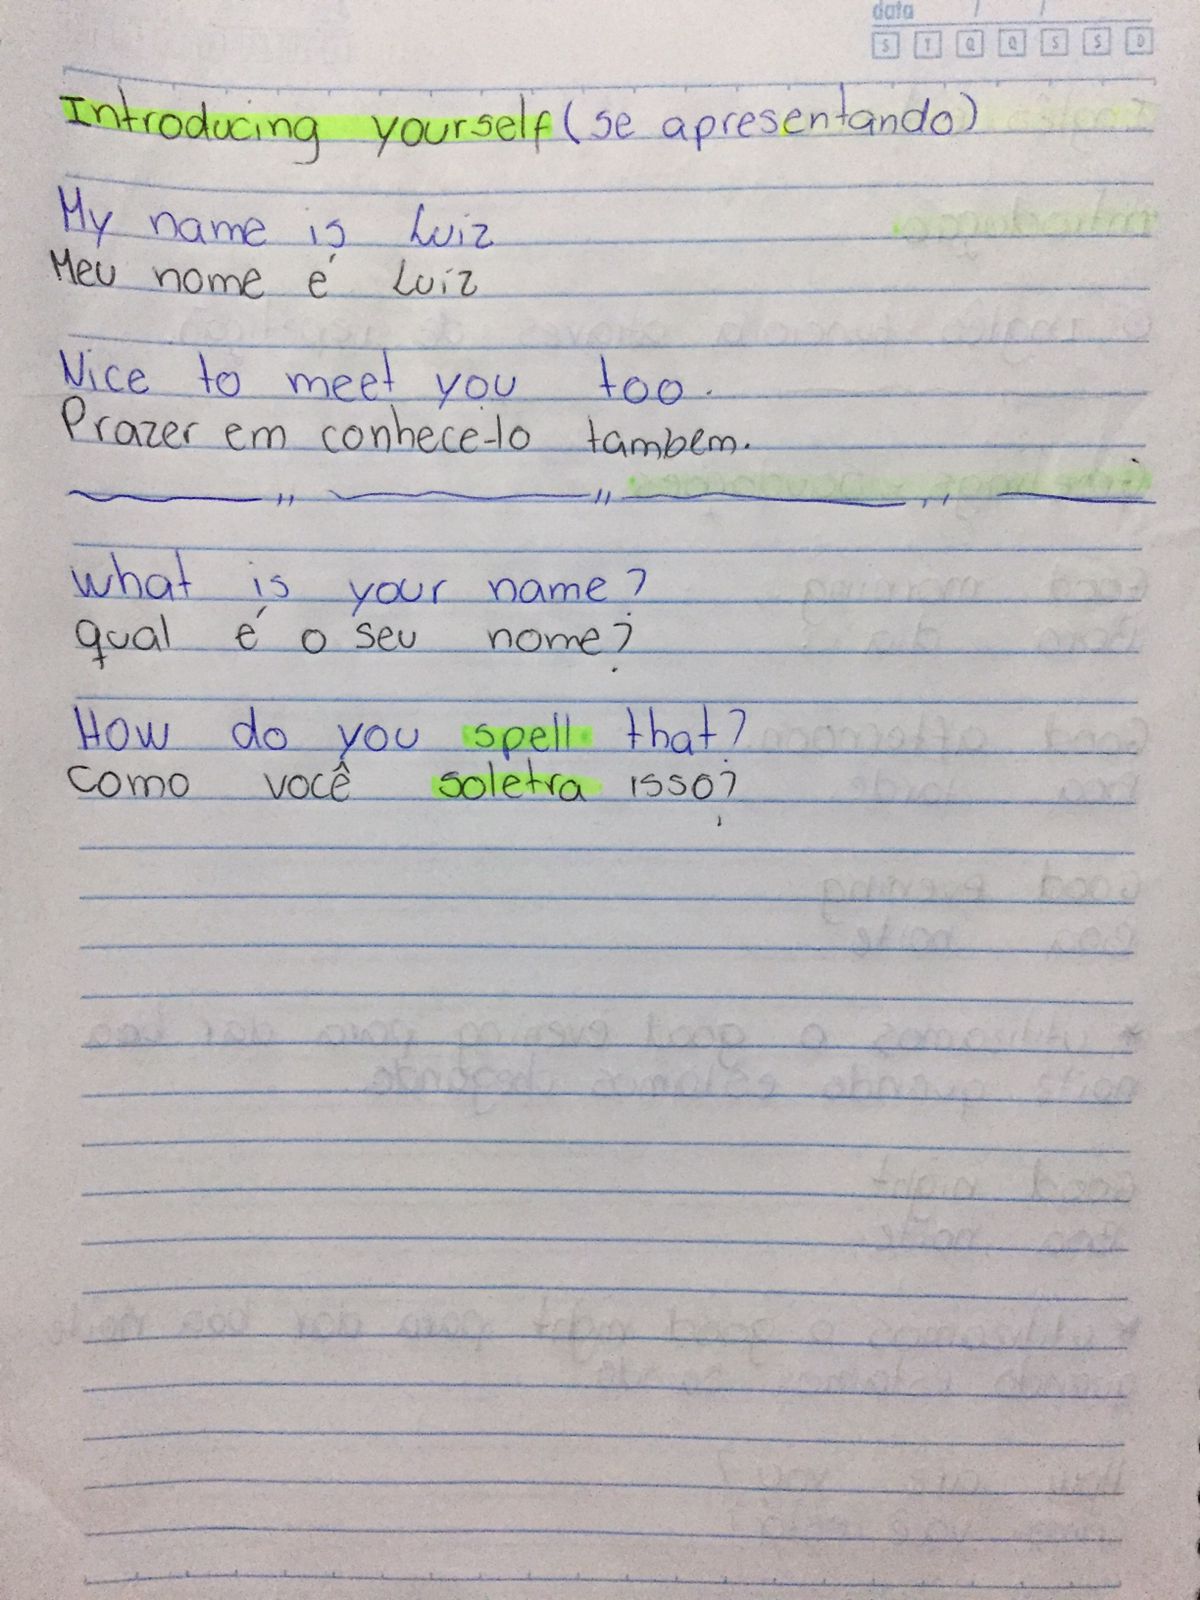 data / /
S T Q Q S S D
Introducing yourself (se apresentando)
My name is Luiz
Meu nome é Luiz
Nice to meet you too.
Prazer em conhece-lo tambem.
What is your name?
qual é o seu nome?
How do you spell that?
como você soletra isso?